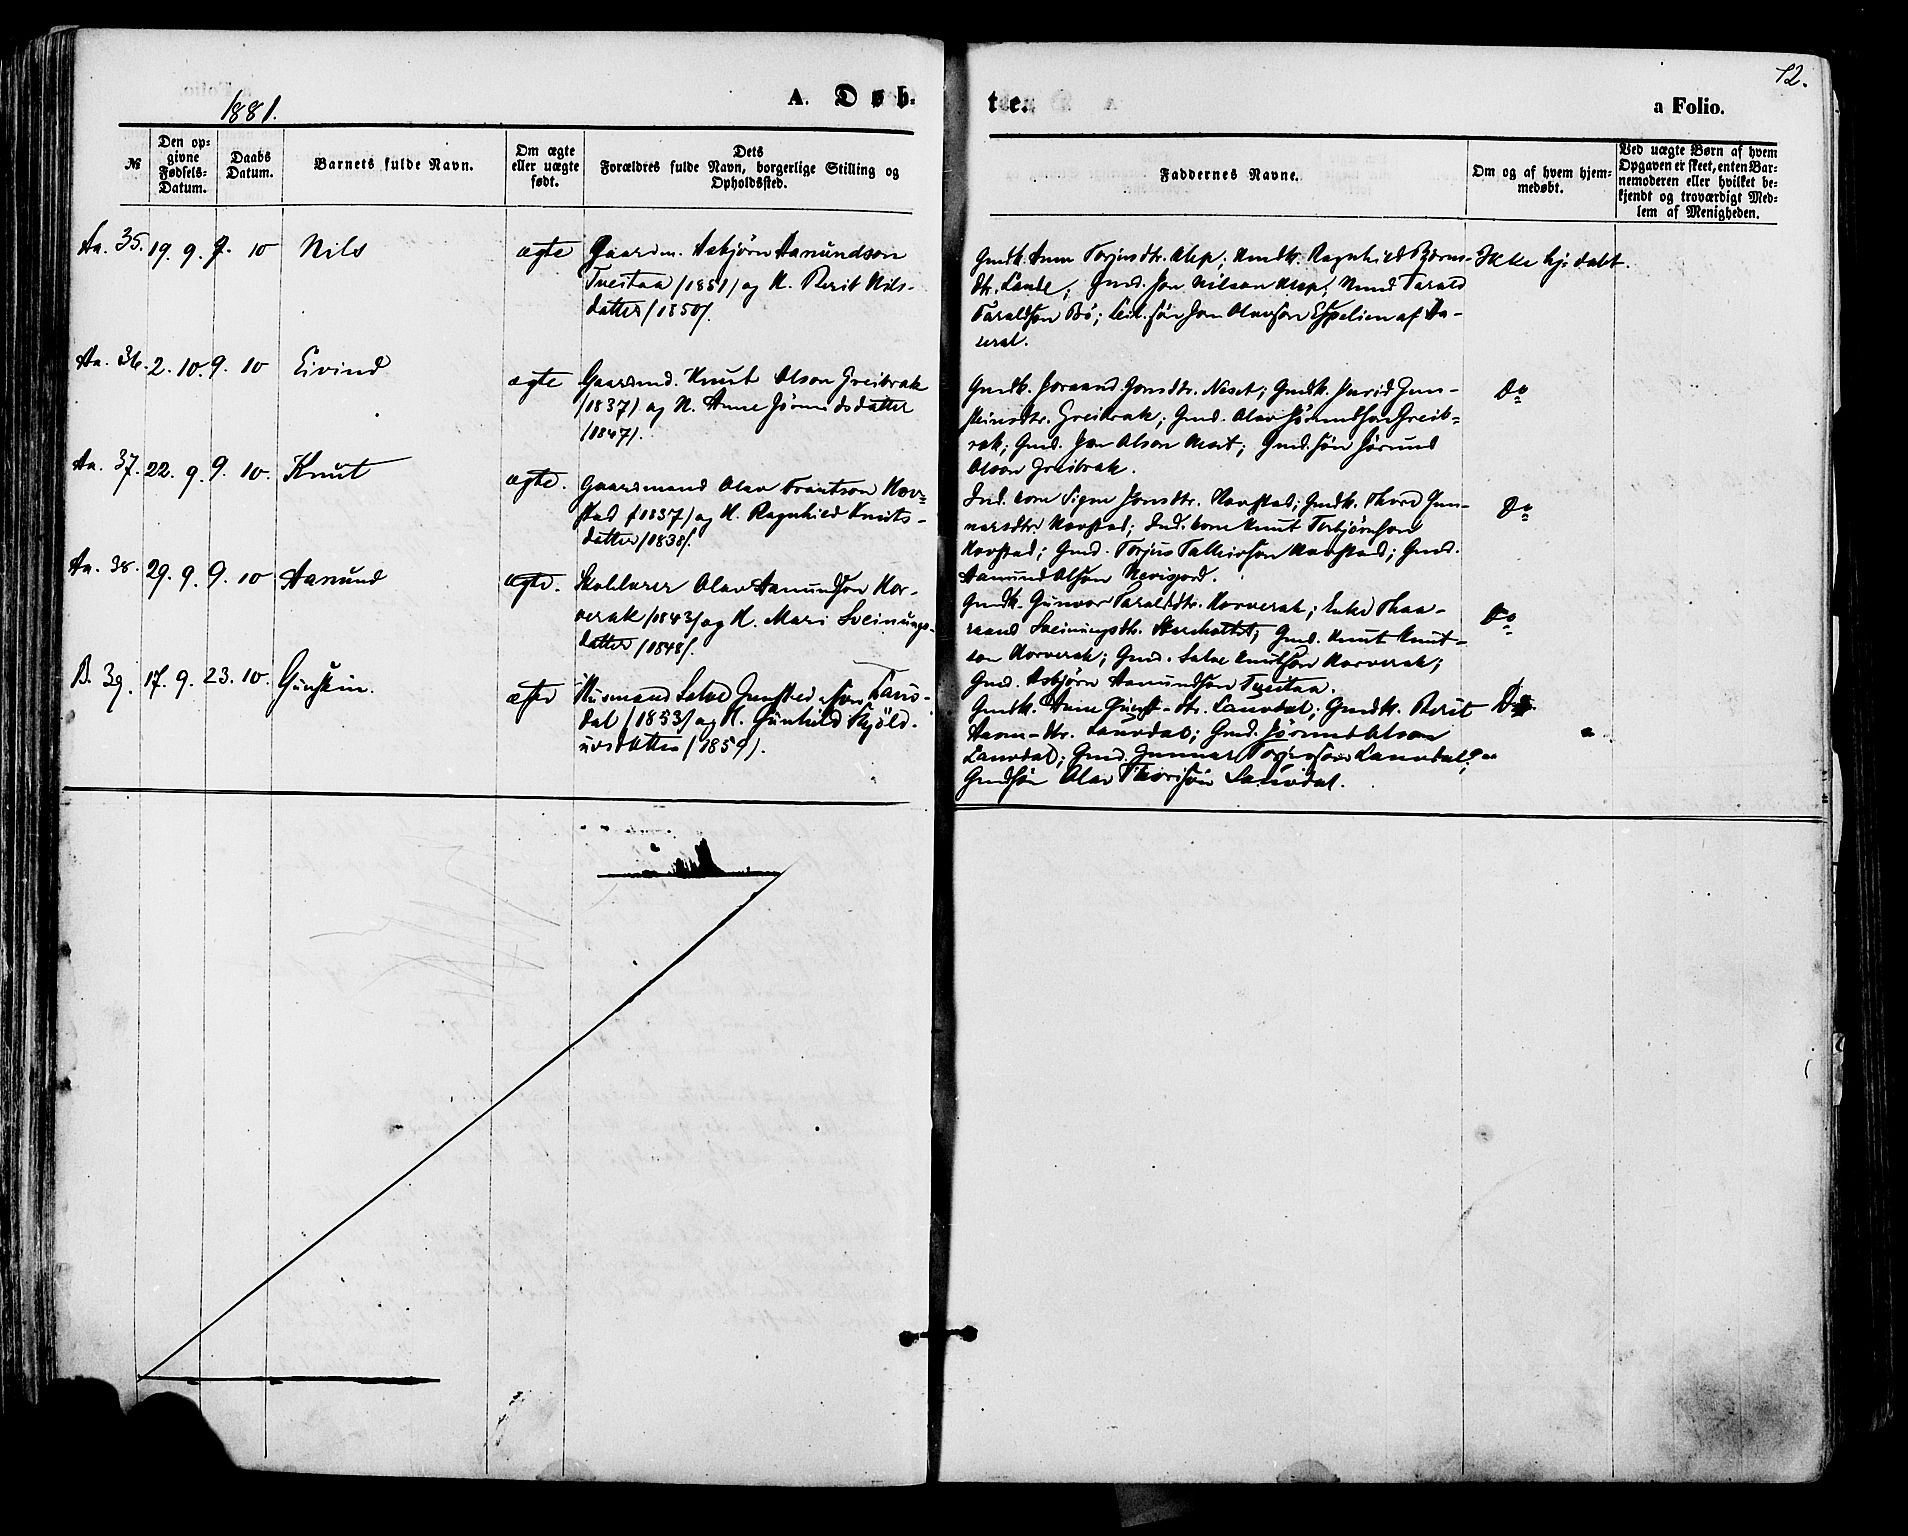 12.
1881.
A. Døb-
te.
a Folio.
№
Den op-
givne
Fødsels-
Datum.
Daabs
Datum.
Barnets fulde Navn.
Om ægte
eller uægte
født.
Dets
Forældres fulde Navn, borgerlige Stilling og
Opholdssted.
Faddernes Navne.
Om og af hvem hjem-
medøbt.
Ved uægte Børn af hvem
Opgaven er skeet, enten Bar-
nemoderen eller hvilket be-
kjendt og troværdigt Med-
lem af Menigheden.
Aa. 35. 19. 9. 9. 10 Nils ægte
Gaardm. Asbjørn Aanundson
Tveitaa (1851) og K. Berit Nils-
datter (1850).
Gmdk. Anne Torjusdtr. Ufsp; Gmdk. Ragnhild Bjørns-
dtr. Lande; Gmd. Jon Nilson; Gmd. Tarald
Taraldson Bö; Leil. sön Jon Olavson Espelien af Aa-
seral.
Ikke hj. döbt.
Aa. 36. 2. 10. 9. 10 Eivind ægte
Gaardmd. Knut Olson Greibrak
(1837) og K. Anne Jörundsdatter
(1847).
Gmdk. Joraand Jonsdtr. Neset; Gmdk. Gun-
steinsdtr. Greibrak; Gmd. Olav Jörundson Greib-
rak; Gmd. Jon Olson Neset; Gmd. sön Jörund
Olson Greibrak.
Do
Aa. 37. 22. 9. 9. 10. Knut ægte.
Gaardmand Olav Trontson Hov-
stad (1837) og K. Ragnhild Knuts-
datter (1838).
Ind. kone Signe Jonsdtr. Hovstad; Gmdk. Thore Gun-
narsdtr. Hovstad; Ind. kone Knut Torbjörnson
Hovstad; Gmd. Torjus Talleivson Hovstad; Gmd.
Aanund Olson.
Do
Aa. 38. 29. 9. 9. 10 Aanund ægte.
Skolelærer Olav Aanundson Hor-
verak (1843) og K. Mari Sveinungs-
datter (1848).
Gmdk. Gunvor Taraldsdtr. Horverak; Enke Thaa-
raand Sveinungsdtr.; Gmd. Knut Knut-
son Horverak; Gmd. Salve Knutson Horverak;
Gmd. Asbjörn Aanundson Tveitaa.
Do
B. 39. 17. 9. 23. 10. Gunstein. ægte
Husmand Salve Gunsteinson Lauv-
dal (1853) og K. Gunhild Skjöld-
ulvsdatter (1859).
Gmdk. Anne Gunst-dtr. Lauvdal; Gmdk. Berit
Aasm-dtr. Lauvdal; Gmd. Jörund Olson
Lauvdal; Gmd. Gunnar Torjusson Lauvdal;
Gmdsön Olav Thorison Lauvdal.
Do